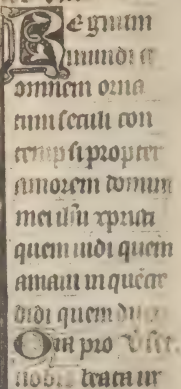 Regnum
mundi et
omnem orna
tum seculi con
tempsi propter
amorem domini
mei ihu xpristi
quem uidi quem
amaui in quem cre
didi quem
Ora pro
nobis beata ur